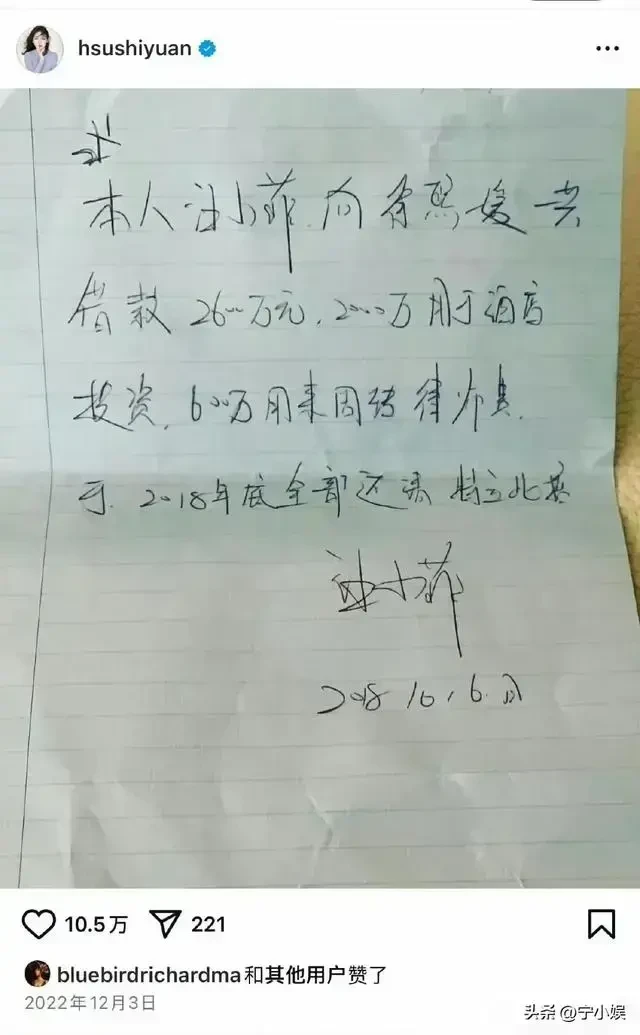 hsushiyuan
本人汪小菲向徐熙媛共
借款 2600万元,2000万用于酒店
投资,600万用来周转律师费.
于 2018年底全部还清 特立此据
汪小菲
2018 10, 6.日
10.5万 221
bluebirdrichardma和其他用户赞了
2022年12月3日
头条 @宁小娱